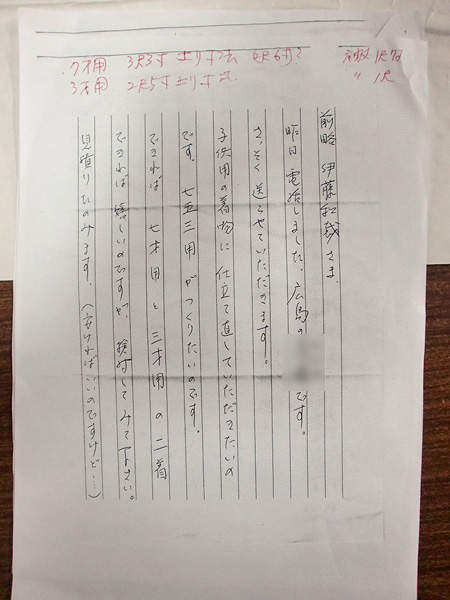 7才用 3尺3寸 上り寸法
3才用 2尺5寸 上り寸法
〃 1尺
前略 伊藤和裁さま
昨日 電話しました、広島の です。
さっそく送らせていただきます。
子供用の着物に仕立て直していただきたいの
です。七五三用がつくりたいのです。
できれば 七才用と三才用の二着
できれば嬉しいのですが、検討してみて下さい。
見積りたのみます。(安ければいいのですけど…)